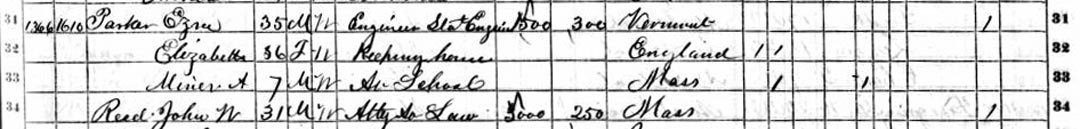 31 1366 1610 Parker Ezra 35 M W Engineer Stat Engin 1500 300 Vermont 1 31
32 Elizabeth 36 F W Keeping house England 1 1 32
33 Miner A 7 M W At School Mass 1 1 33
34 Reed John W 31 M W Atty At Law 5000 250 Mass 1 34